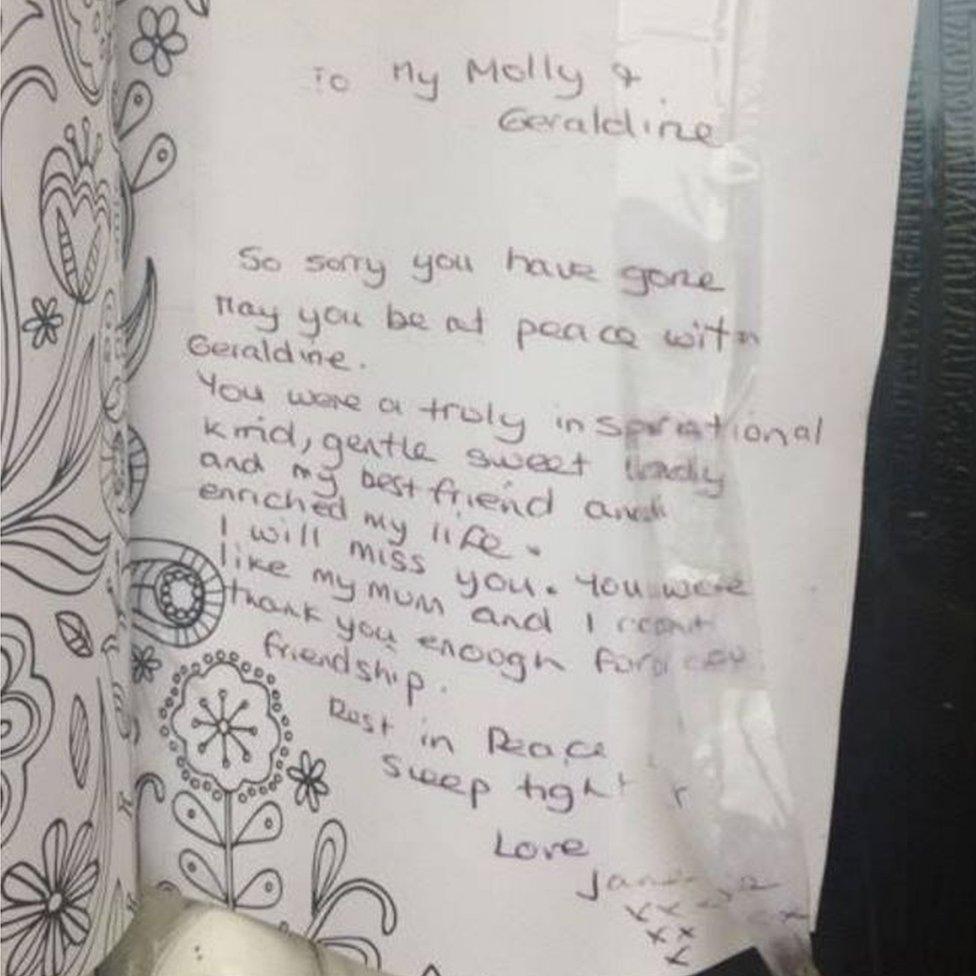 To My Molly &
Geraldine
So sorry you have gone
May you be at peace with
Geraldine.
You were a truly inspirational
kind, gentle sweet lady
and my best friend and
enriched my life.
I will miss you. You were
like my mum and I cant
thank you enough for
friendship.
Rest in Peace
Sleep tight
Love
xx
xx
x